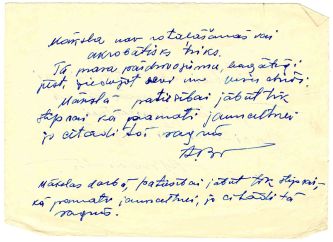 Māksla nav rotaļāšanās vai
akrobātisks triks.
Tā prasa pašdrošību, bagātīgi
just, ziedojot sevi un
Mākslā patiesībai jābūt tik
stiprai kā pamati jaunceltnei
jo citādi tā sagrūs
Mākslas darbā, patiesībai jābūt tik stiprai,
kā pamati jaunceltnei, jo citādi tā
sagrūs.